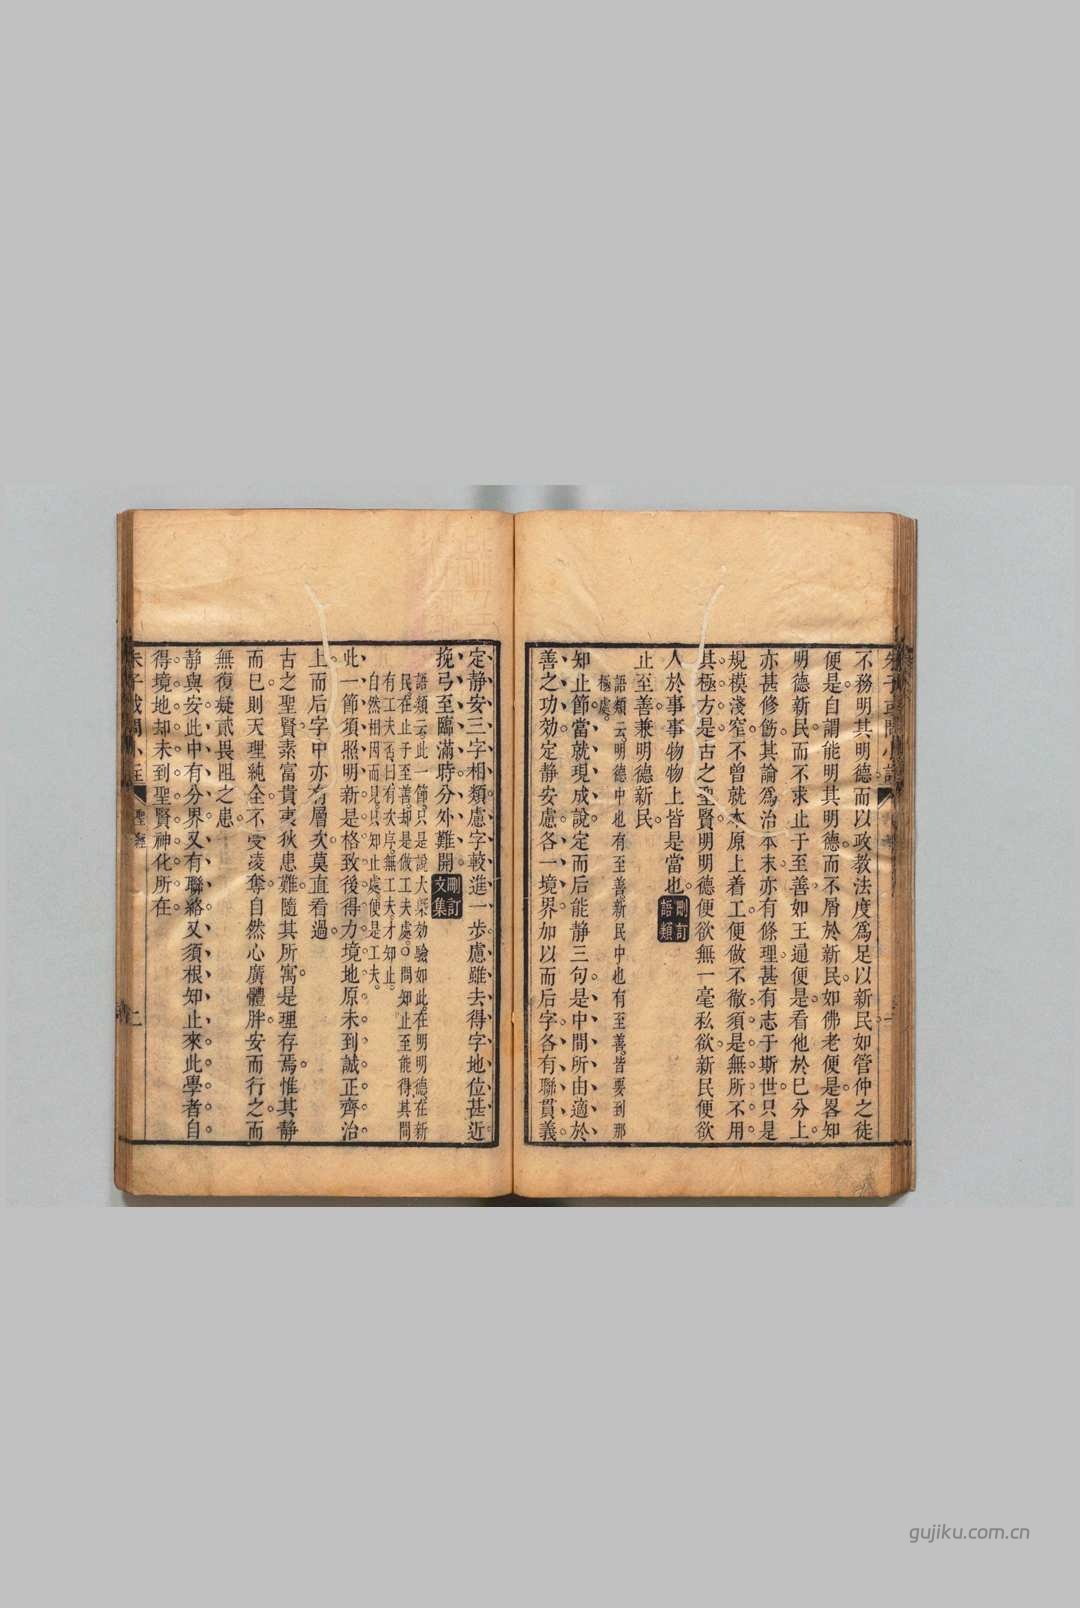 不務明其明德而以政教法度為足以新民如管仲之徒
便是自謂能明其明德而不屑於新民如佛老便是畧知
明德新民而不求止于至善如王通便是看他於已分上
亦甚修飭其論為治本末亦有條理甚有志于斯世只是
規模淺窄不曾就本原上着工便做不徹須是無所不用
其極方是古之聖賢明明德便欲無一毫私欲新民便欲
人於事事物物上皆是當也刪訂語類
止至善兼明德新民
語類云明德中也有至善新民中也有至善皆要到那
極處
知止節當就現成說定而后能靜三句是中間所由適於
善之功効定靜安慮各一境界加以而后字各有聯貫義
定靜安三字相類慮字較進一步慮雖去得字地位甚近
挽弓至臨滿時分外難開刪訂文集
語類云此一節只是說大槩効驗如此在明明德在新
民在止于至善却是做工夫處○問知止至能得其間
有工夫否曰有次序無工夫才知止
自然相因而見只知止處便是工夫
此一節須照明新是格致後得力境地原未到誠正齊治
上而后字中亦有層次莫直看過
古之聖賢素富貴夷狄患難隨其所寓是理存焉惟其靜
而已則天理純全不受凌奪自然心廣體胖安而行之而
無復疑貳畏阻之患
靜與安此中有分界又有聯絡又須根知止來此學者自
得境地却未到聖賢神化所在
聖經
gujiku.com.cn